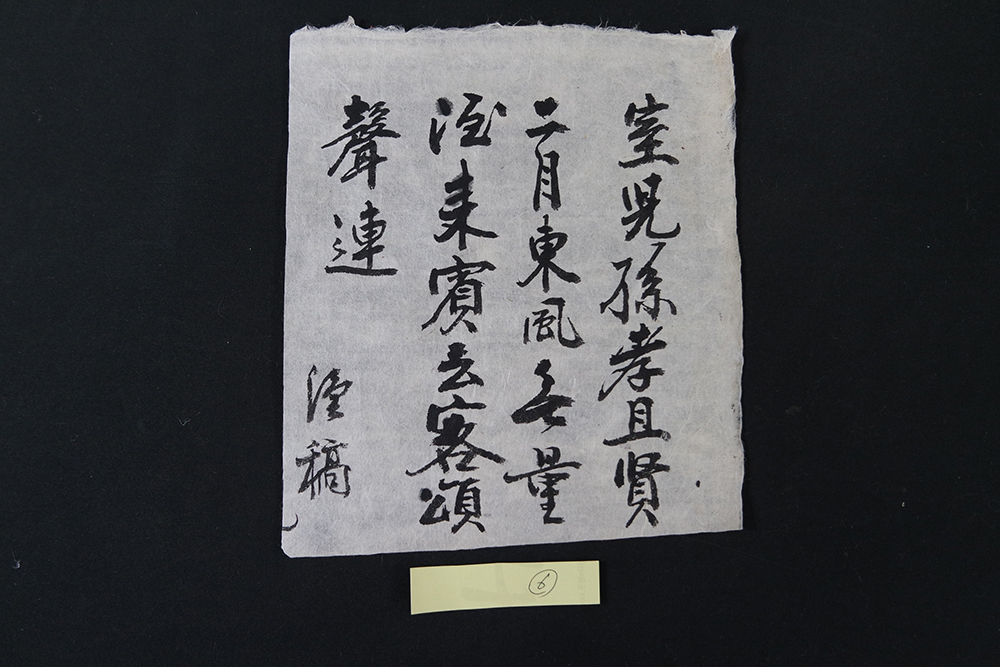 室兒孫孝且賢
二月東風無量
酒来賓去客頌
聲連
稿
6